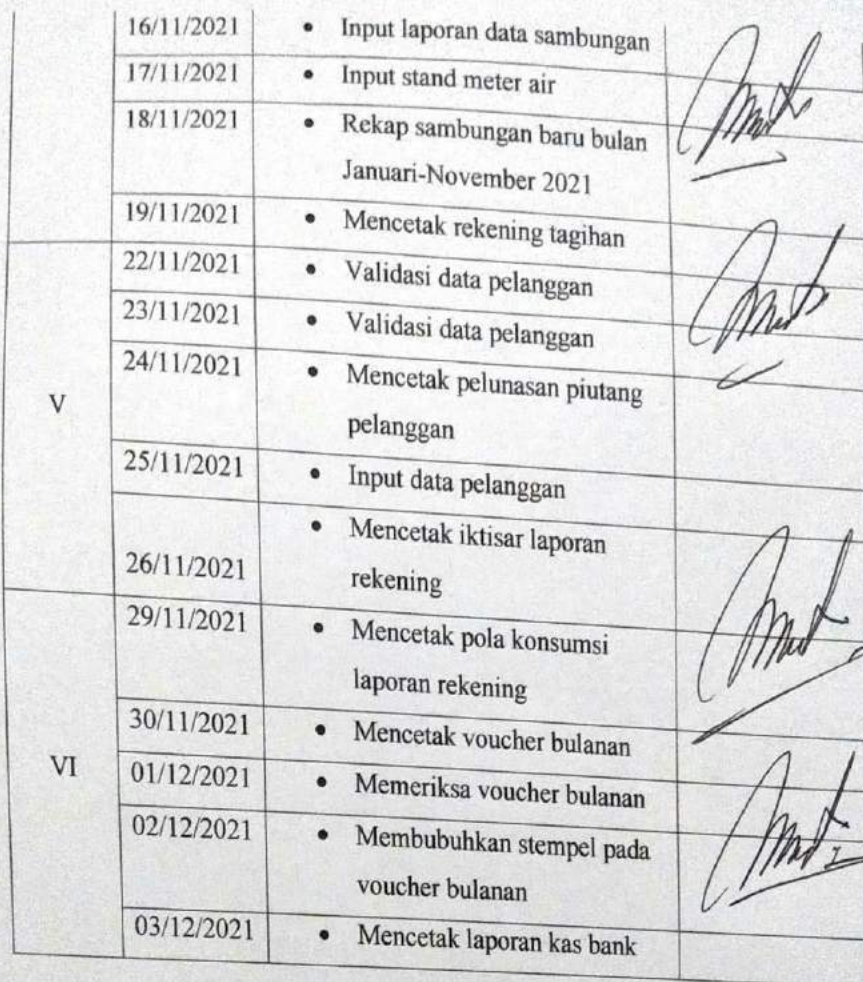 16/11/2021 • Input laporan data sambungan
17/11/2021 • Input stand meter air
18/11/2021 • Rekap sambungan baru bulan
Januari-November 2021
19/11/2021 • Mencetak rekening tagihan
V
22/11/2021 • Validasi data pelanggan
23/11/2021 • Validasi data pelanggan
24/11/2021 • Mencetak pelunasan piutang
pelanggan
25/11/2021 • Input data pelanggan
26/11/2021 • Mencetak iktisar laporan
rekening
VI
29/11/2021 • Mencetak pola konsumsi
laporan rekening
30/11/2021 • Mencetak voucher bulanan
01/12/2021 • Memeriksa voucher bulanan
02/12/2021 • Membubuhkan stempel pada
voucher bulanan
03/12/2021 • Mencetak laporan kas bank